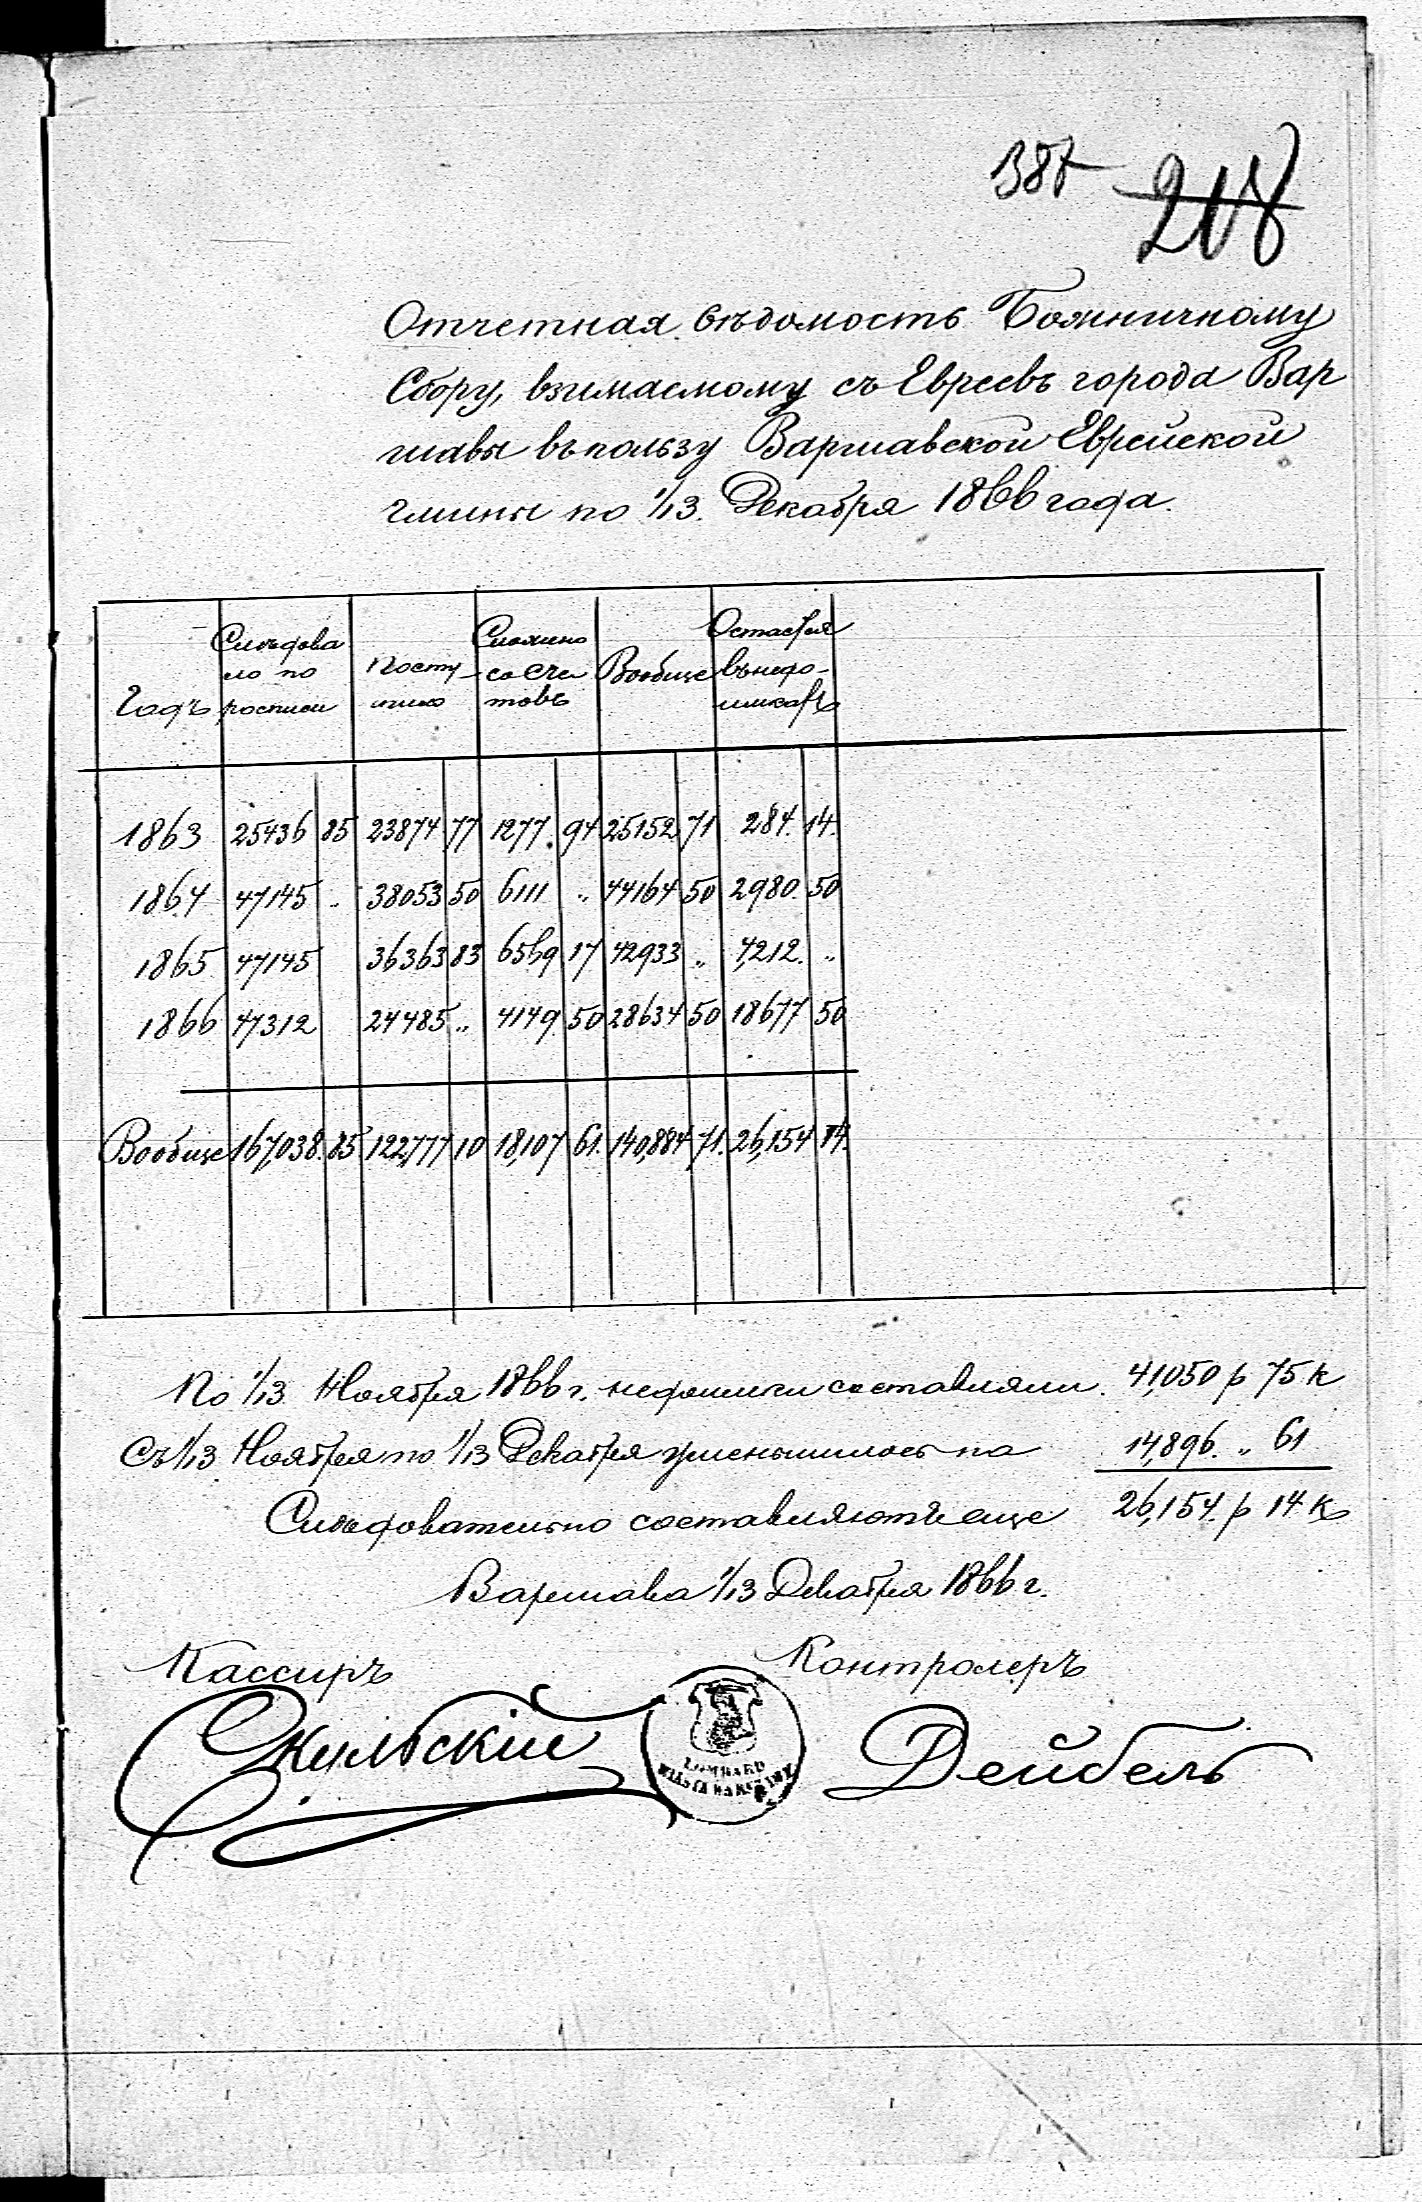 387
218
Отчетная вѣдомость Божничному
Сбору, взимаемому съ Евреевъ города Вар
шавы въ пользу Варшавской Еврейской
гмины по 1/13. Декабря 1866 года.
Годъ Слѣдова ло по росписи Посту пило Сложено со сче товъ Вообще Остается въ недо- имкахъ
1863 25436 85 23874 77 1277. 94 25152 71 284. 14.
1864 47145 „ 38053 50 6111 „ 44164 50 2980. 50
1865 47145 36363 83 6569 17 42933 „ 4,212. „
1866 47312 24485 „ 4149 50 28634 50 18677 50
Вообще 167,038. 85 122,777 10 18,107 61. 140,884 71. 26,154 14.
По 1/13 Ноября 1866 г. недоимки составляли. 41,050 р 75 к
Съ 1/13 Ноября по 1/13 Декабря уменьшилось на 14,896. „ 61
Слѣдовательно составляютъ еще 26,154. р 14 к
Варшава 1/13 Декабря 1866 г.
Кассиръ Контролеръ
Скульскій Дейбель
LOMBARD
MIASTA WARSZAWY